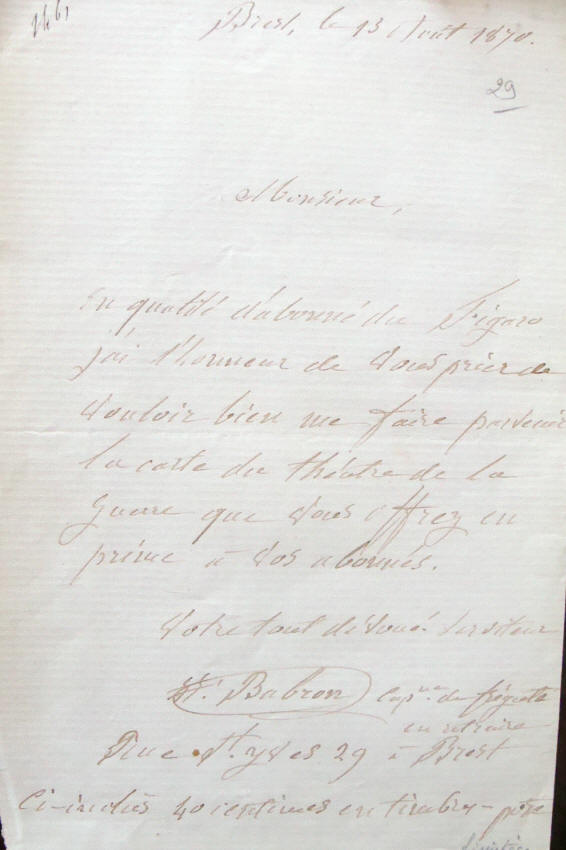 Brest, le 13 Août 1870.
29
Monsieur,
En qualité d'abonné du Figaro
j'ai l'honneur de vous prier de
vouloir bien me faire parvenir
la carte du théâtre de la
guerre que vous offrez en
prime à vos abonnés.
Votre tout dévoué serviteur
Babron capne de frégate
en retraite
Rue St. yves 29 à Brest
Ci-inclus 40 centimes en timbres-poste
Finistère